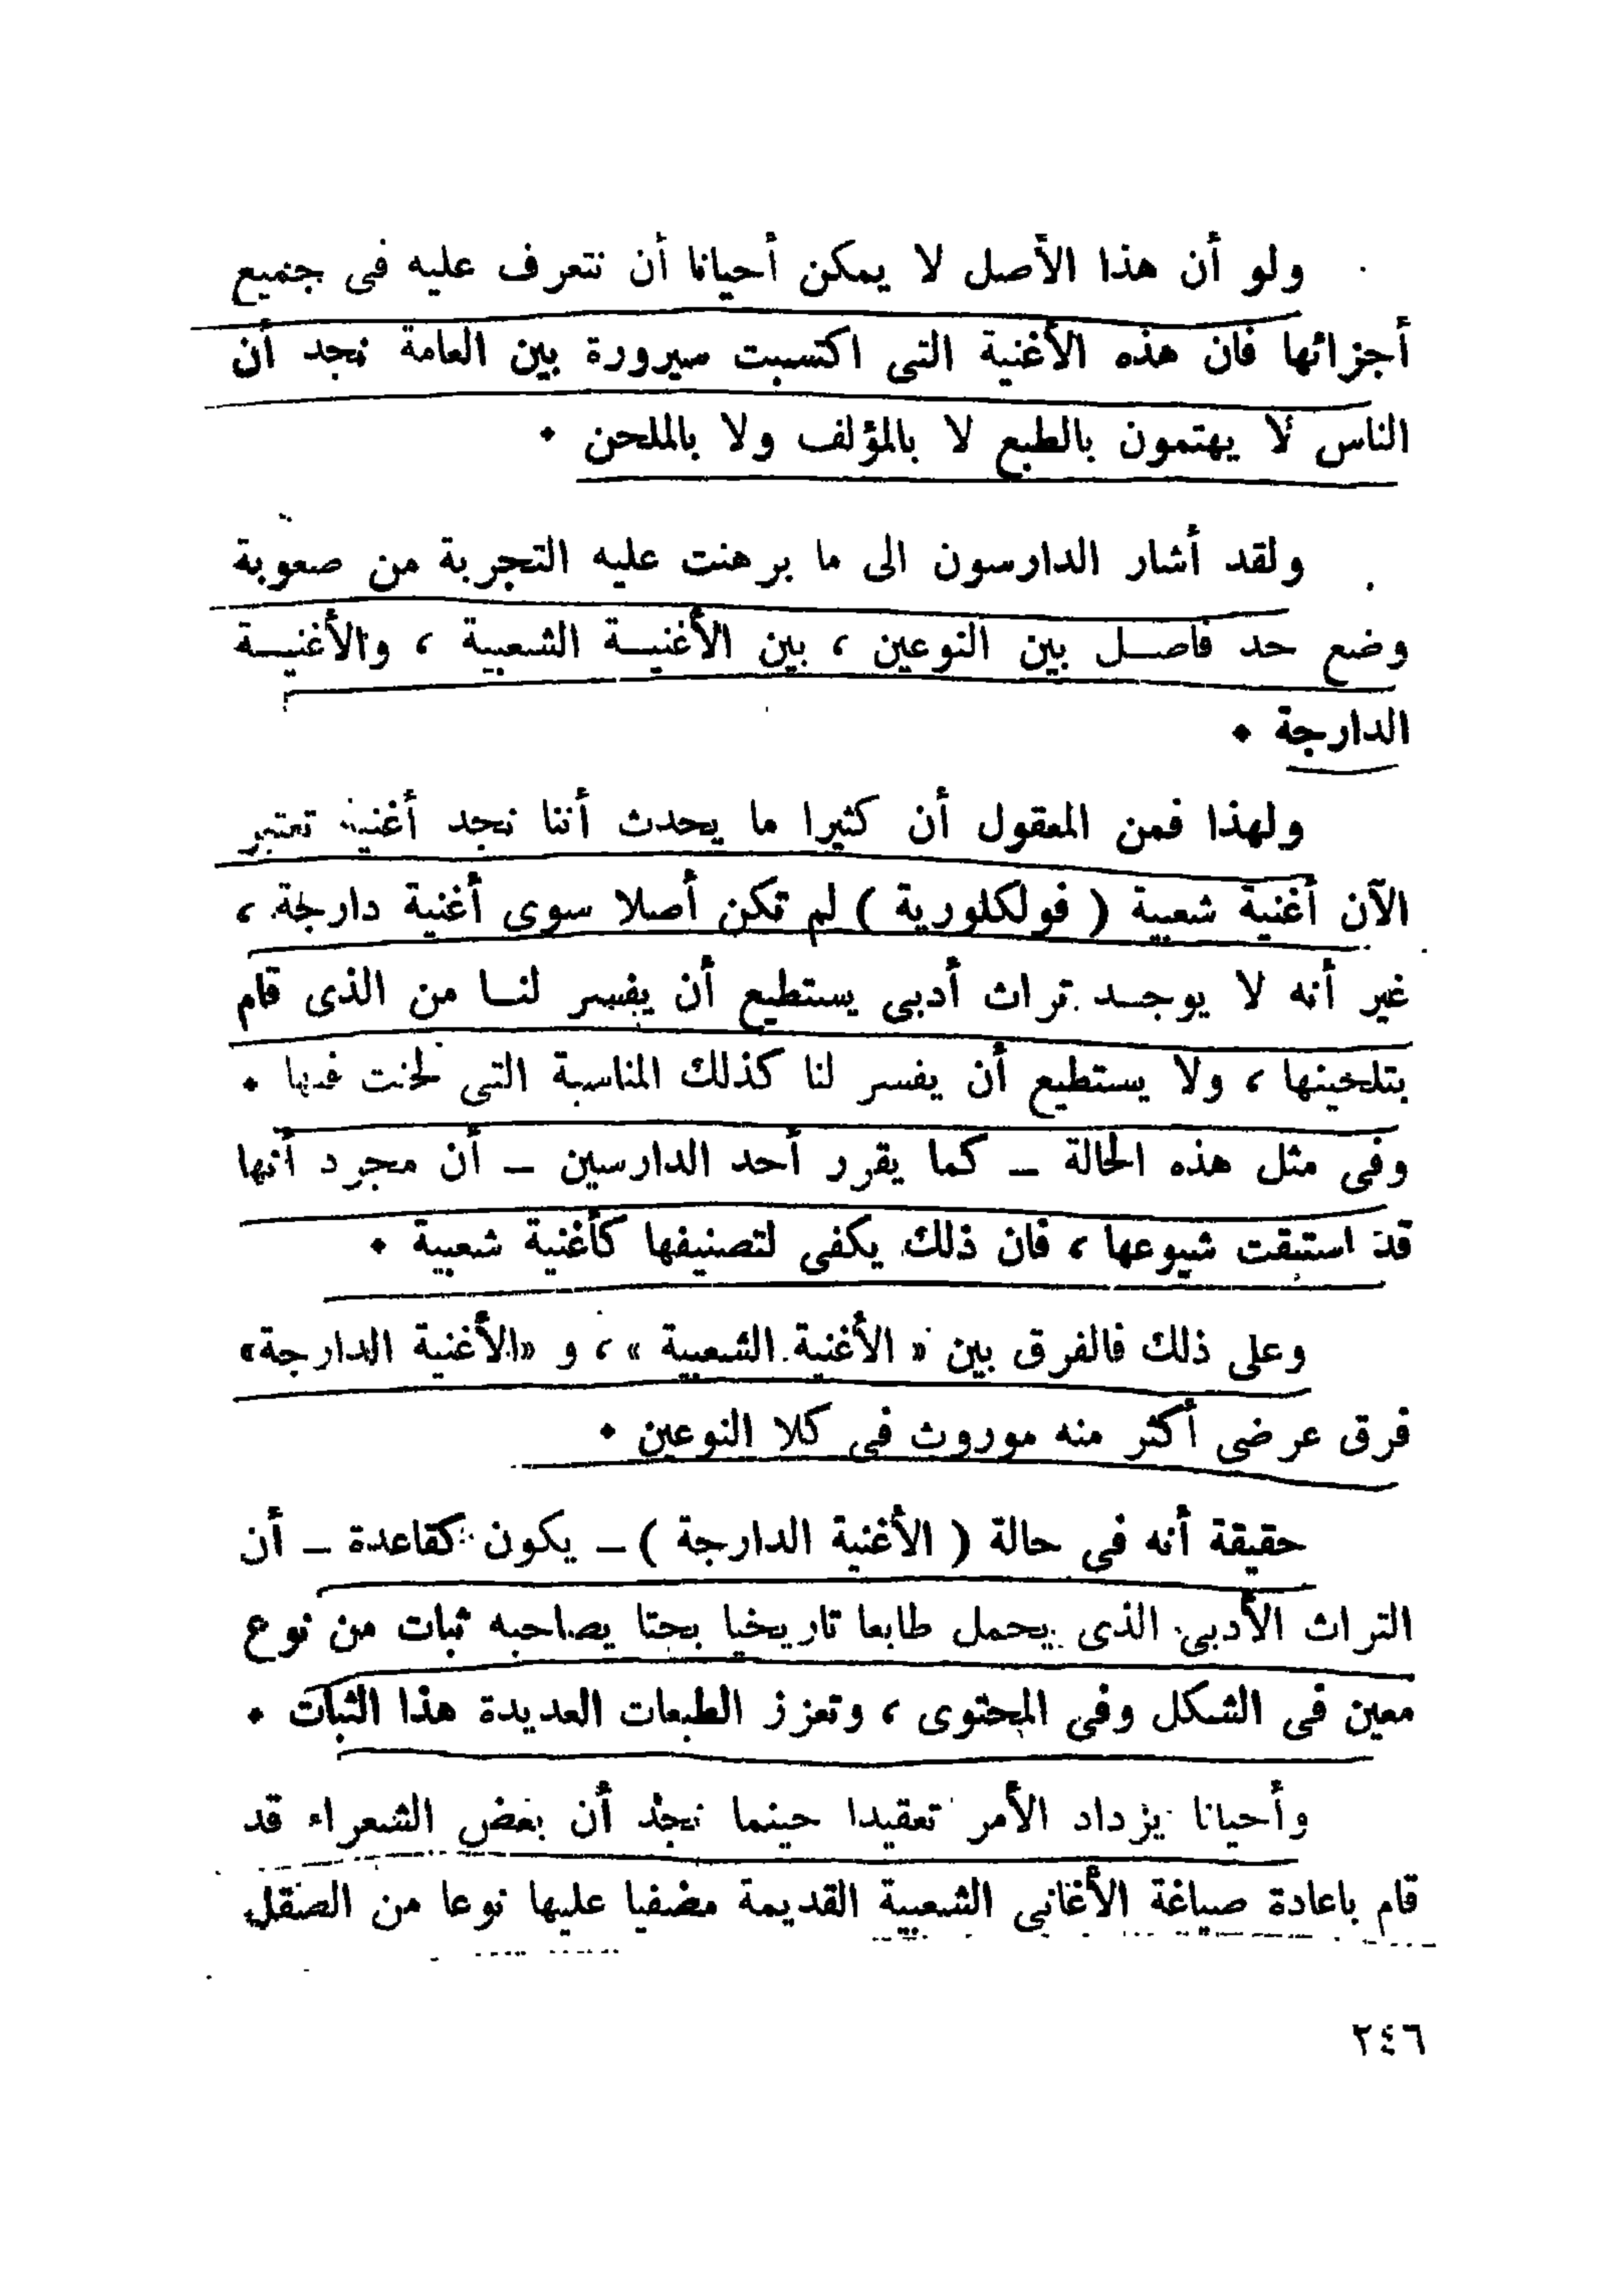 ولو أن هذا الأصل لا يمكن أحيانا أن نتعرف عليه فى جميع
أجزائها فان هذه الأغنية التى اكتسبت سيرورة بين العامة نجد أن
الناس لا يهتمون بالطبع لا بالمؤلف ولا بالملحن •
ولقد أشار الدارسون الى ما برهنت عليه التجربة من صعوبة
وضع حد فاصل بين النوعين ، بين الأغنية الشعبية ، والأغنية
الدارجة •
ولهذا فمن المعقول أن كثيرا ما يحدث أننا نجد أغنية تعتبر
الآن أغنية شعبية ( فولكلورية ) لم تكن أصلا سوى أغنية دارجة ،
غير أنه لا يوجد تراث أدبى يستطيع أن يفسر لنا من الذى قام
بتلحينها ، ولا يستطيع أن يفسر لنا كذلك المناسبة التى لحنت فيها •
وفى مثل هذه الحالة – كما يقرر أحد الدارسين – أن مجرد أنها
قد استبقت شيوعها ، فان ذلك يكفى لتصنيفها كأغنية شعبية •
وعلى ذلك فالفرق بين « الأغنية الشعبية » ، و «الأغنية الدارجة»
فرق عرضى أكثر منه موروث فى كلا النوعين •
حقيقة أنه فى حالة ( الأغنية الدارجة ) – يكون كقاعدة – أن
التراث الأدبى الذى يحمل طابعا تاريخيا بحتا يصاحبه ثبات من نوع
معين فى الشكل وفى المحتوى ، وتعزز الطبعات العديدة هذا الثبات •
وأحيانا يزداد الأمر تعقيدا حينما نجد أن بعض الشعراء قد
قام باعادة صياغة الأغانى الشعبية القديمة مضفيا عليها نوعا من الصقل
٢٤٦